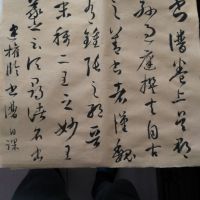 書譜卷上吳郡
孫過庭撰夫自古
之善書者漢魏
有鍾張之絕晉
末稱二王之妙王
羲之云頃尋諸名書
臨書譜日課